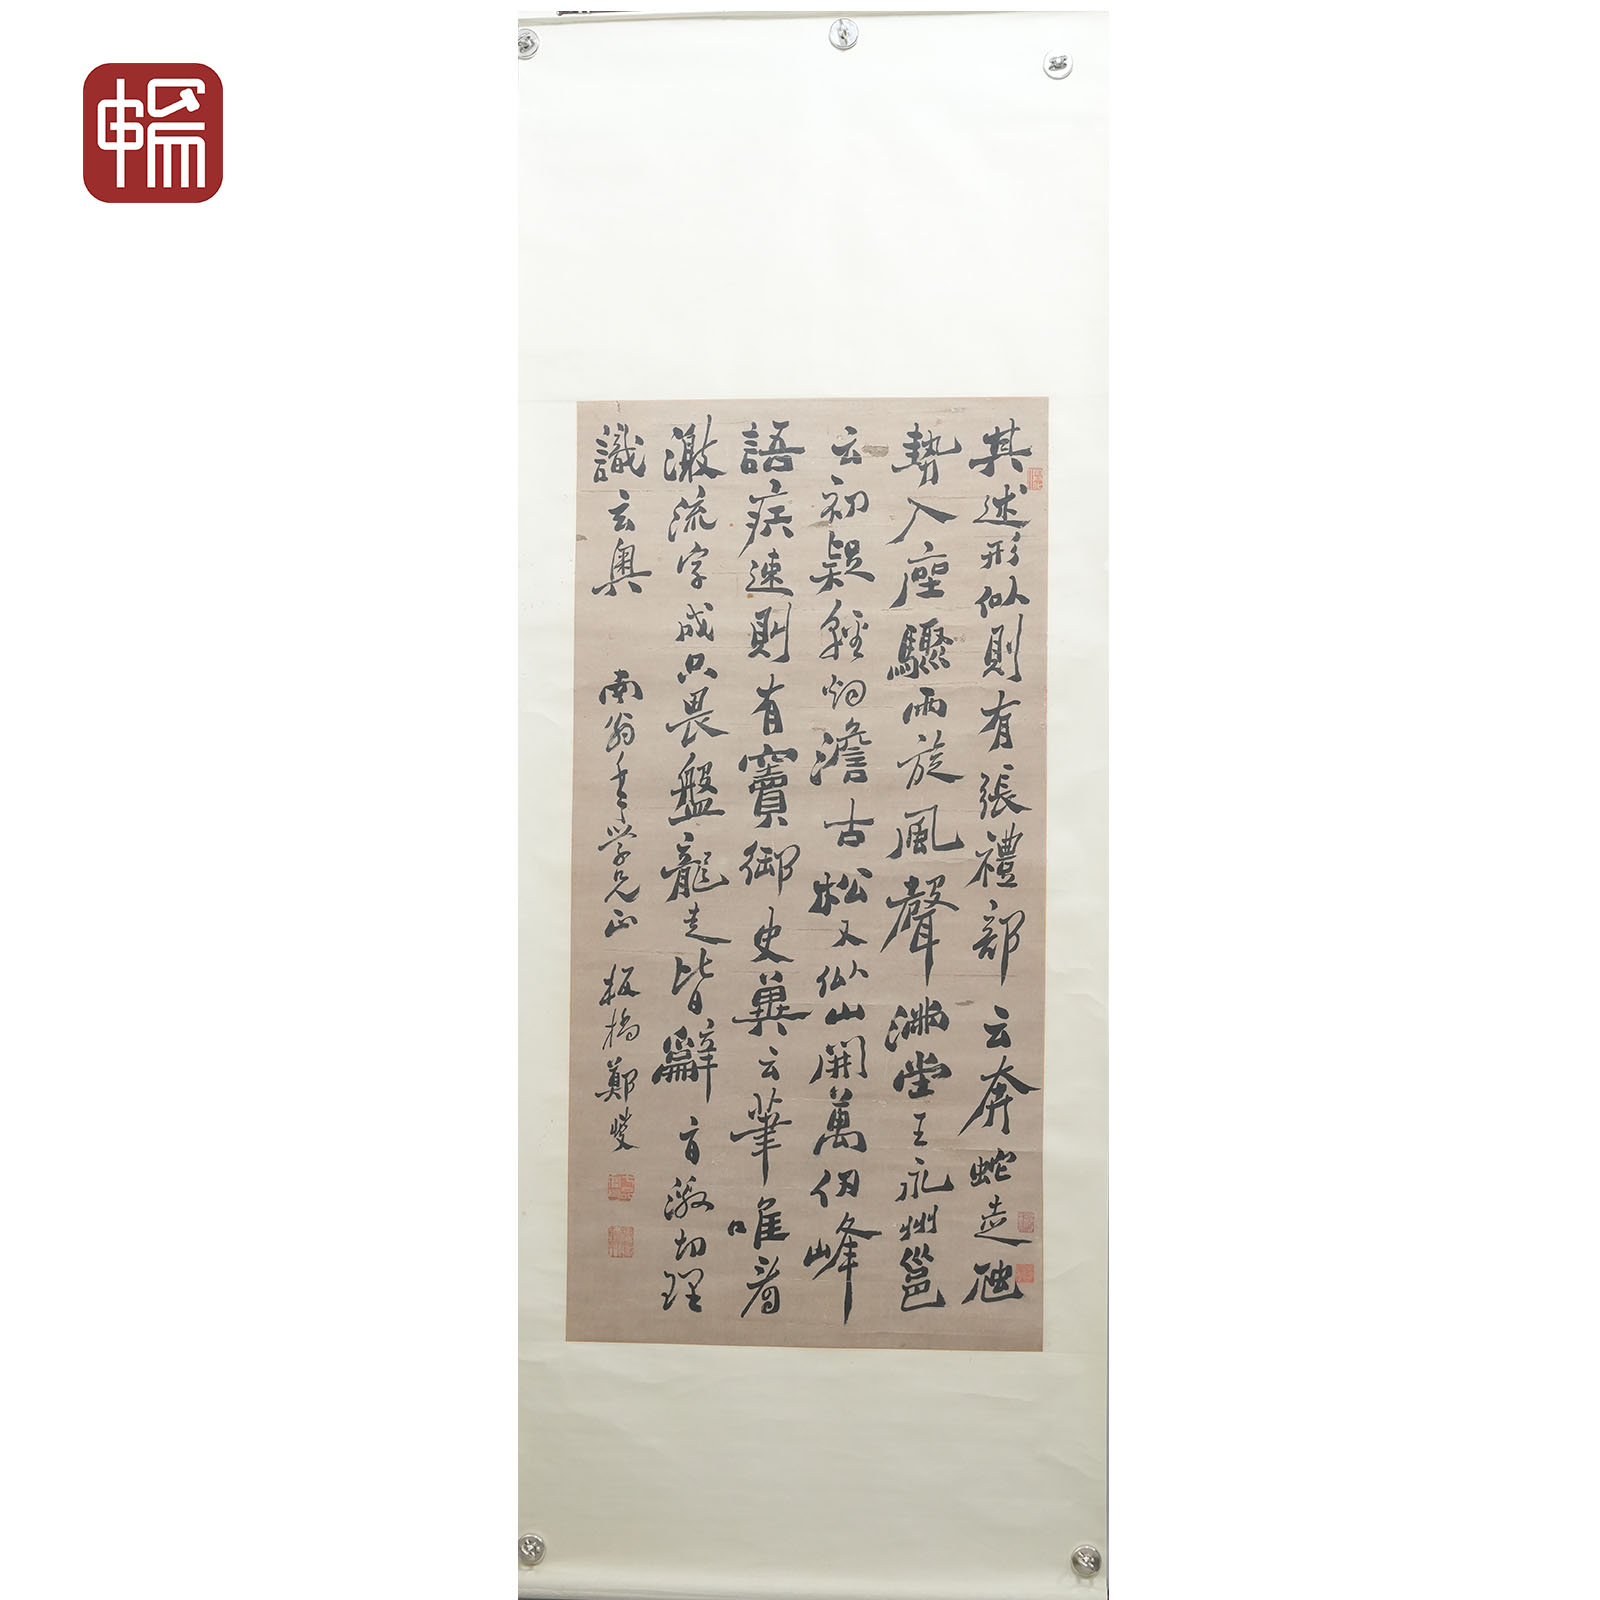 其述形似則有張禮部云奔蛇走虺
勢入座驟雨旋風聲滿堂王永州邕
云初疑輕烟澹古松又似山開萬仞峰
語疾速則有竇御史冀云筆唯看
激流字成只畏盤龍走皆辭旨激切理
識玄奥
南翁年学兄正 板橋鄭燮